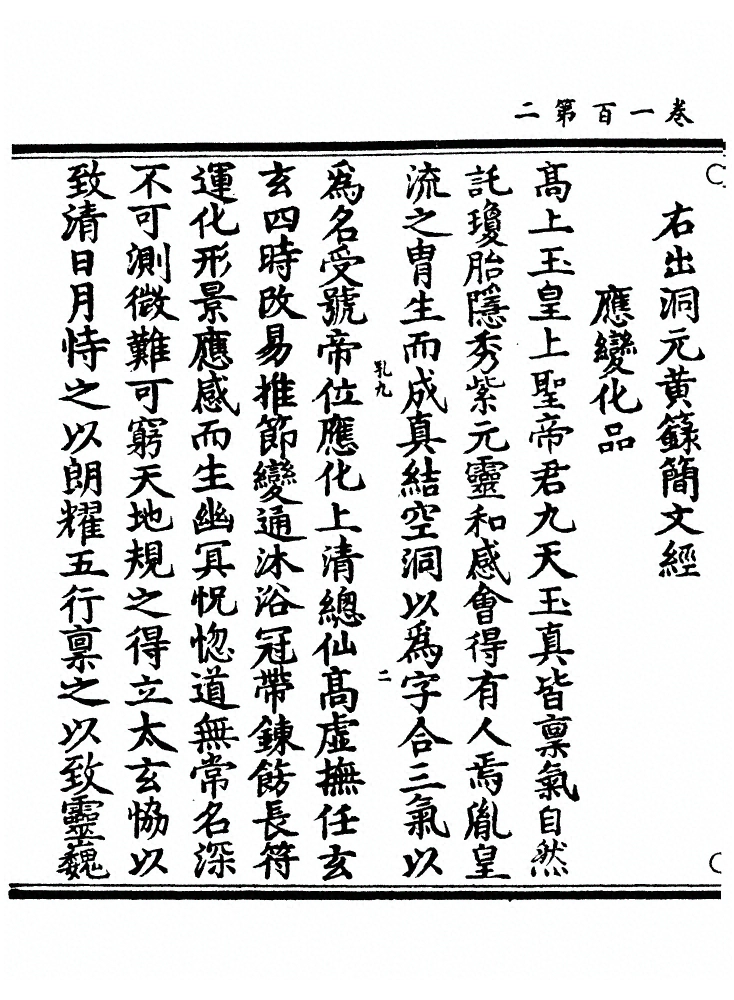 卷一百第二
右出洞元黃籙簡文經
應變化品
高上玉皇上聖帝君九天玉真皆禀氣自然
託瓊胎隱秀紫元靈和感會得有人焉胤皇
流之胄生而成真結空洞以爲字合三氣以
乳九
二
爲名受號帝位應化上清總仙高虛撫任玄
玄四時改易推節變通沐浴冠帶鍊餝長符
運化形景應感而生幽冥怳惚道無常名深
不可測微難可窮天地規之得立太玄恊以
致清日月恃之以朗耀五行禀之以致靈巍